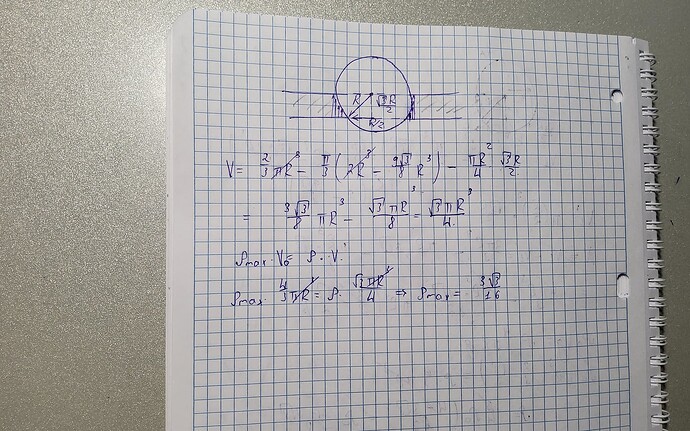 R √3R/2
R/2
V = 2/3 πR³ - π/3 (2R³ - 9√3/8 R³) - πR²/4 √3R/2
= 3√3/8 πR³ - √3πR³/8 = √3πR³/4.
ρmax · V₀ = ρ · V.
ρmax · 4/3 πR³ = ρ · √3πR³/4 ⇒ ρmax = 3√3/16